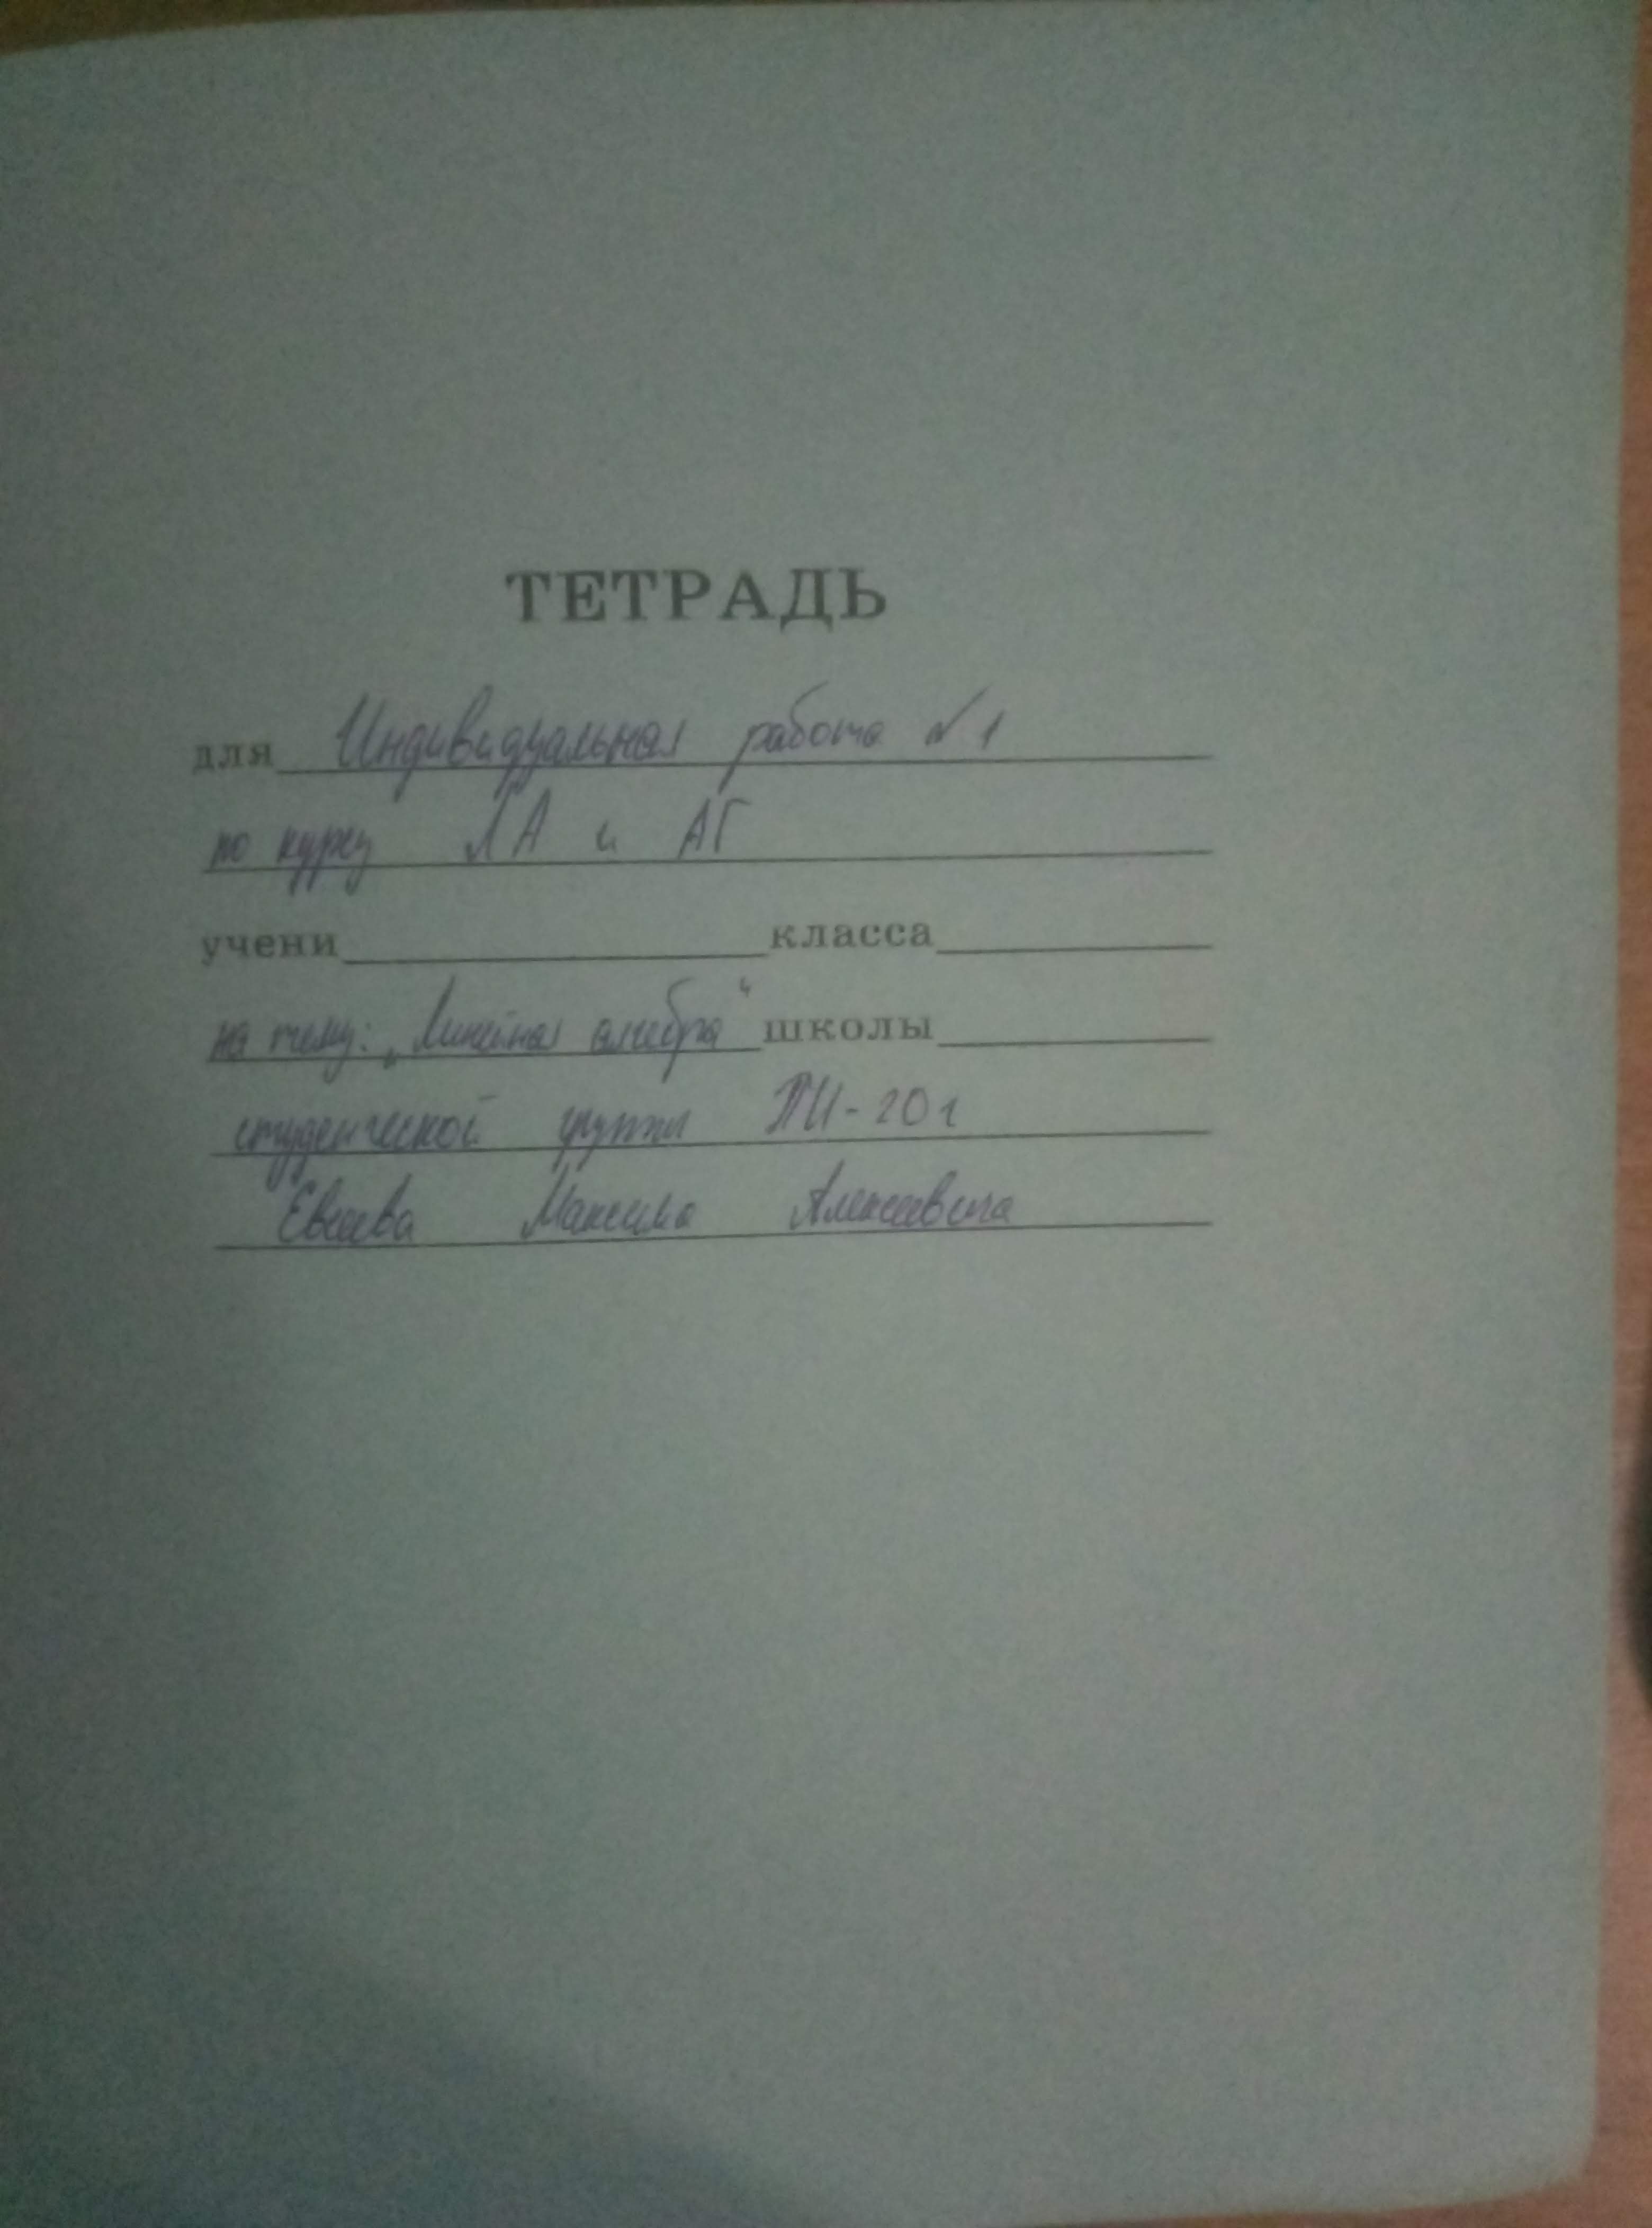 ТЕТРАДЬ
для Индивидуальная работа №1
по курсу ЛА и АГ
учени класса
на тему: „Линейная алгебра“ школы
студенческой группы ПИ-20г
Евсеева Максима Алексеевича